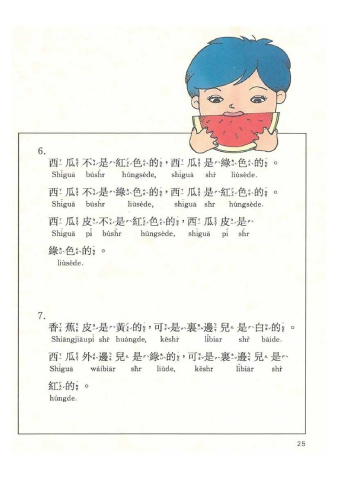 6.
西瓜不是紅色的，西瓜是綠色的。
Shīguā búshr̀ húngsède, shīguā shr̀ liùsède.
西瓜不是綠色的，西瓜是紅色的。
Shīguā búshr̀ liùsède, shīguā shr̀ húngsède.
西瓜皮不是紅色的，西瓜皮是
Shīguā pí búshr̀ húngsède, shīguā pí shr̀
綠色的。
liùsède.
7.
香蕉皮是黃的，可是裏邊兒是白的。
Shiāngjiāupí shr̀ huángde, kěshr̀ lǐbiār shr̀ báide.
西瓜外邊兒是綠的，可是裏邊兒是
Shīguā wàibiār shr̀ liùde, kěshr̀ lǐbiār shr̀
紅的。
húngde.
25